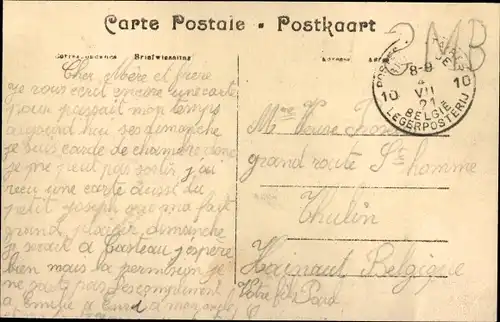 Carte Postale - Postkaart
Correspondance Briefwisseling
Adresse
MB
POSTES
8-9
4
10 VII 10
21
BELGIË
LEGERPOSTERIJ
Cher Mère et frère
je vous ecrit encore une carte
pour passait mon temps
aujourd hui ses dimanche
je suis carde de chambre donc
je ne peut pas sortir j'ai
reçu une carte aussi du
petit joseph que ma fait
grand plaisir dimanche
je serait a Casteau j'espère
bien mais la permision je
ne sait pas des compliment
a emilie a
Mme
grand route St homme
Thulin
Hainaut Belgique
Votre fils